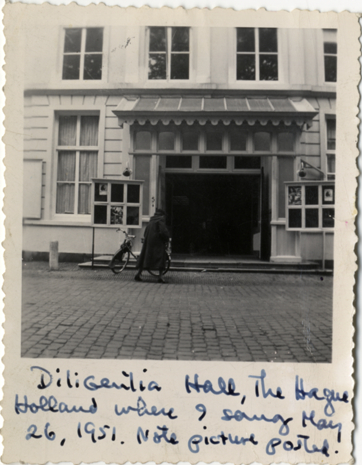 Diligentia Hall, The Hague
Holland where I sang May
26, 1951. Note picture posted.